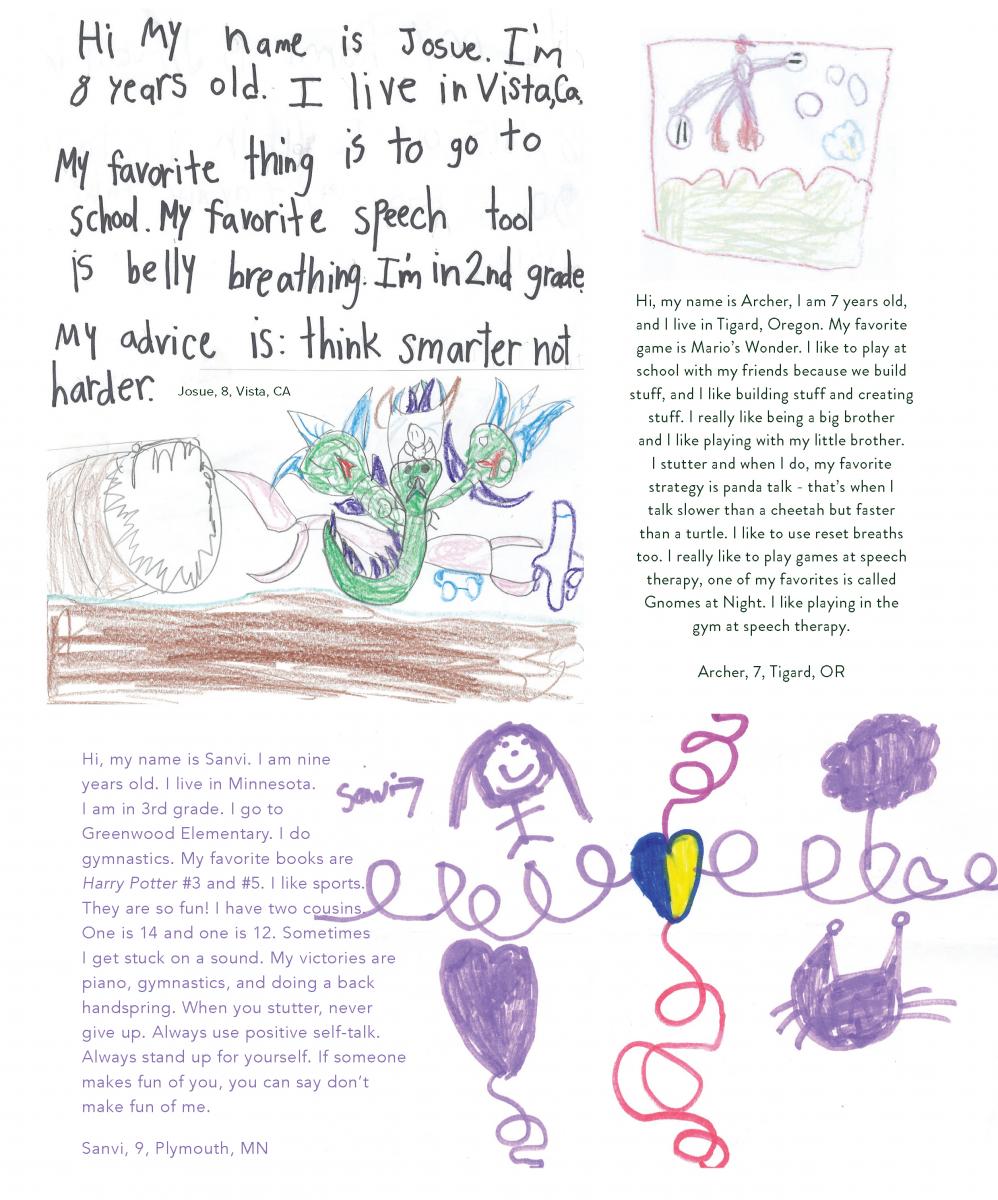 Hi My name is Josue. I'm
8 years old. I live in Vista,Ca.
My favorite thing is to go to
school. My favorite speech tool
is belly breathing. I'm in 2nd grade
My advice is: think smarter not
harder.
Josue, 8, Vista, CA
Hi, my name is Archer, I am 7 years old,
and I live in Tigard, Oregon. My favorite
game is Mario's Wonder. I like to play at
school with my friends because we build
stuff, and I like building stuff and creating
stuff. I really like being a big brother
and I like playing with my little brother.
I stutter and when I do, my favorite
strategy is panda talk - that's when I
talk slower than a cheetah but faster
than a turtle. I like to use reset breaths
too. I really like to play games at speech
therapy, one of my favorites is called
Gnomes at Night. I like playing in the
gym at speech therapy.
Archer, 7, Tigard, OR
Hi, my name is Sanvi. I am nine
years old. I live in Minnesota.
I am in 3rd grade. I go to
Greenwood Elementary. I do
gymnastics. My favorite books are
Harry Potter #3 and #5. I like sports.
They are so fun! I have two cousins.
One is 14 and one is 12. Sometimes
I get stuck on a sound. My victories are
piano, gymnastics, and doing a back
handspring. When you stutter, never
give up. Always use positive self-talk.
Always stand up for yourself. If someone
makes fun of you, you can say don't
make fun of me.
Sanvi, 9, Plymouth, MN
Sanvi